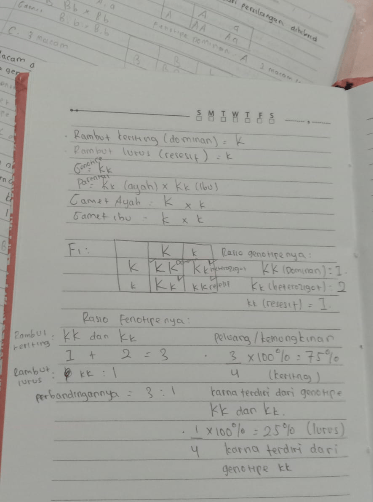 Gamet
Bb x Bb
B b x B b
C. 3 macam
macam
persilangan
A
a
A
AA
Aa
B
B
S M T W T F S
. Rambut keriting (dominan) = K
. Rambut lurus (resesif) = k
Genotip = Kk
Parental = Kk (ayah) x Kk (ibu)
Gamet Ayah = K x k
Gamet ibu = K x k
F1 :
K
k
Rasio genotipenya :
K
KK
Kk
KK (Dominan) = 1
k
Kk
kk
Kk (heterozigot) = 2
kk (resesif) = 1
Rasio Fenotipenya :
Rambut keriting :
KK dan Kk
peluang/kemungkinan
1 + 2 = 3
. 3 x 100% = 75%
Rambut lurus :
kk : 1
4 (keriting)
perbandingannya = 3 : 1
karna terdiri dari genotipe
KK dan Kk.
. 1 x 100% = 25% (lurus)
4 karna terdiri dari
genotipe kk